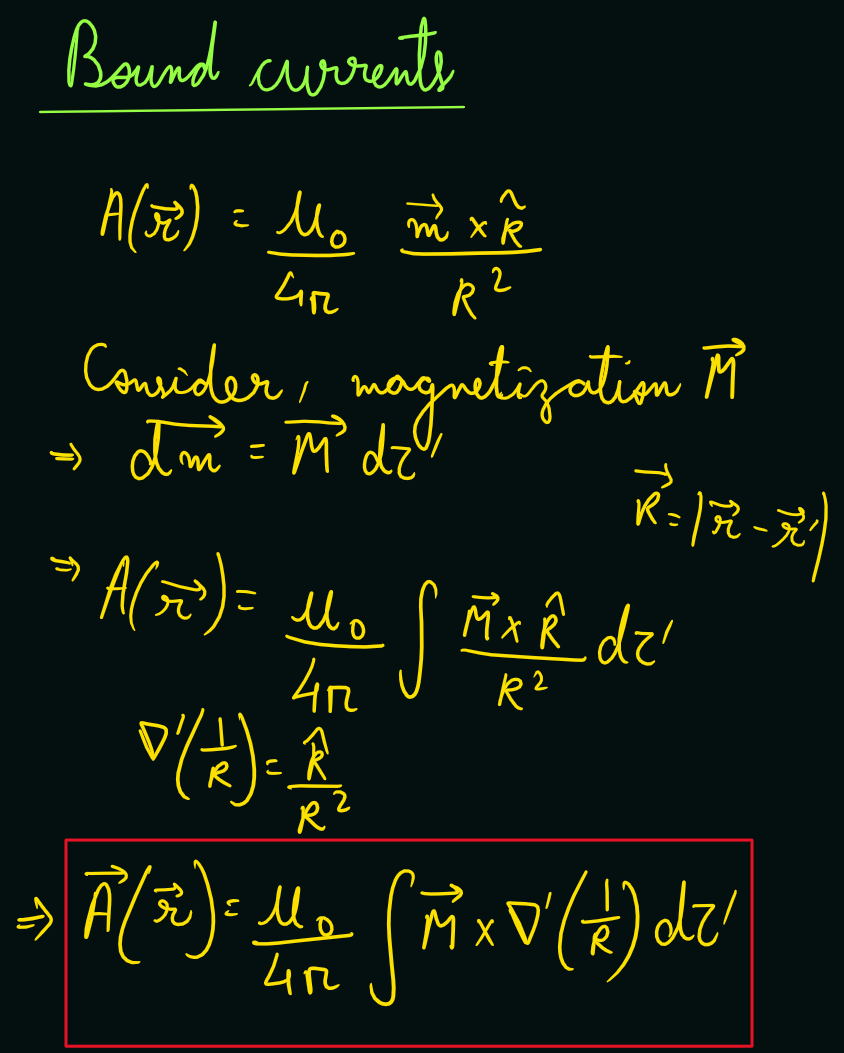 Bound currents
A(r⃗) = μ₀/4π (m⃗ × R̂)/R²
Consider, magnetization M⃗
⇒ d⃗m⃗ = M⃗ dτ'
R⃗ = |r⃗ - r⃗'|
⇒ A(r⃗) = μ₀/4π ∫ (M⃗ × R̂)/R² dτ'
∇'(1/R) = R̂/R²
⇒ A⃗(r⃗) = μ₀/4π ∫ M⃗ × ∇'(1/R) dτ'